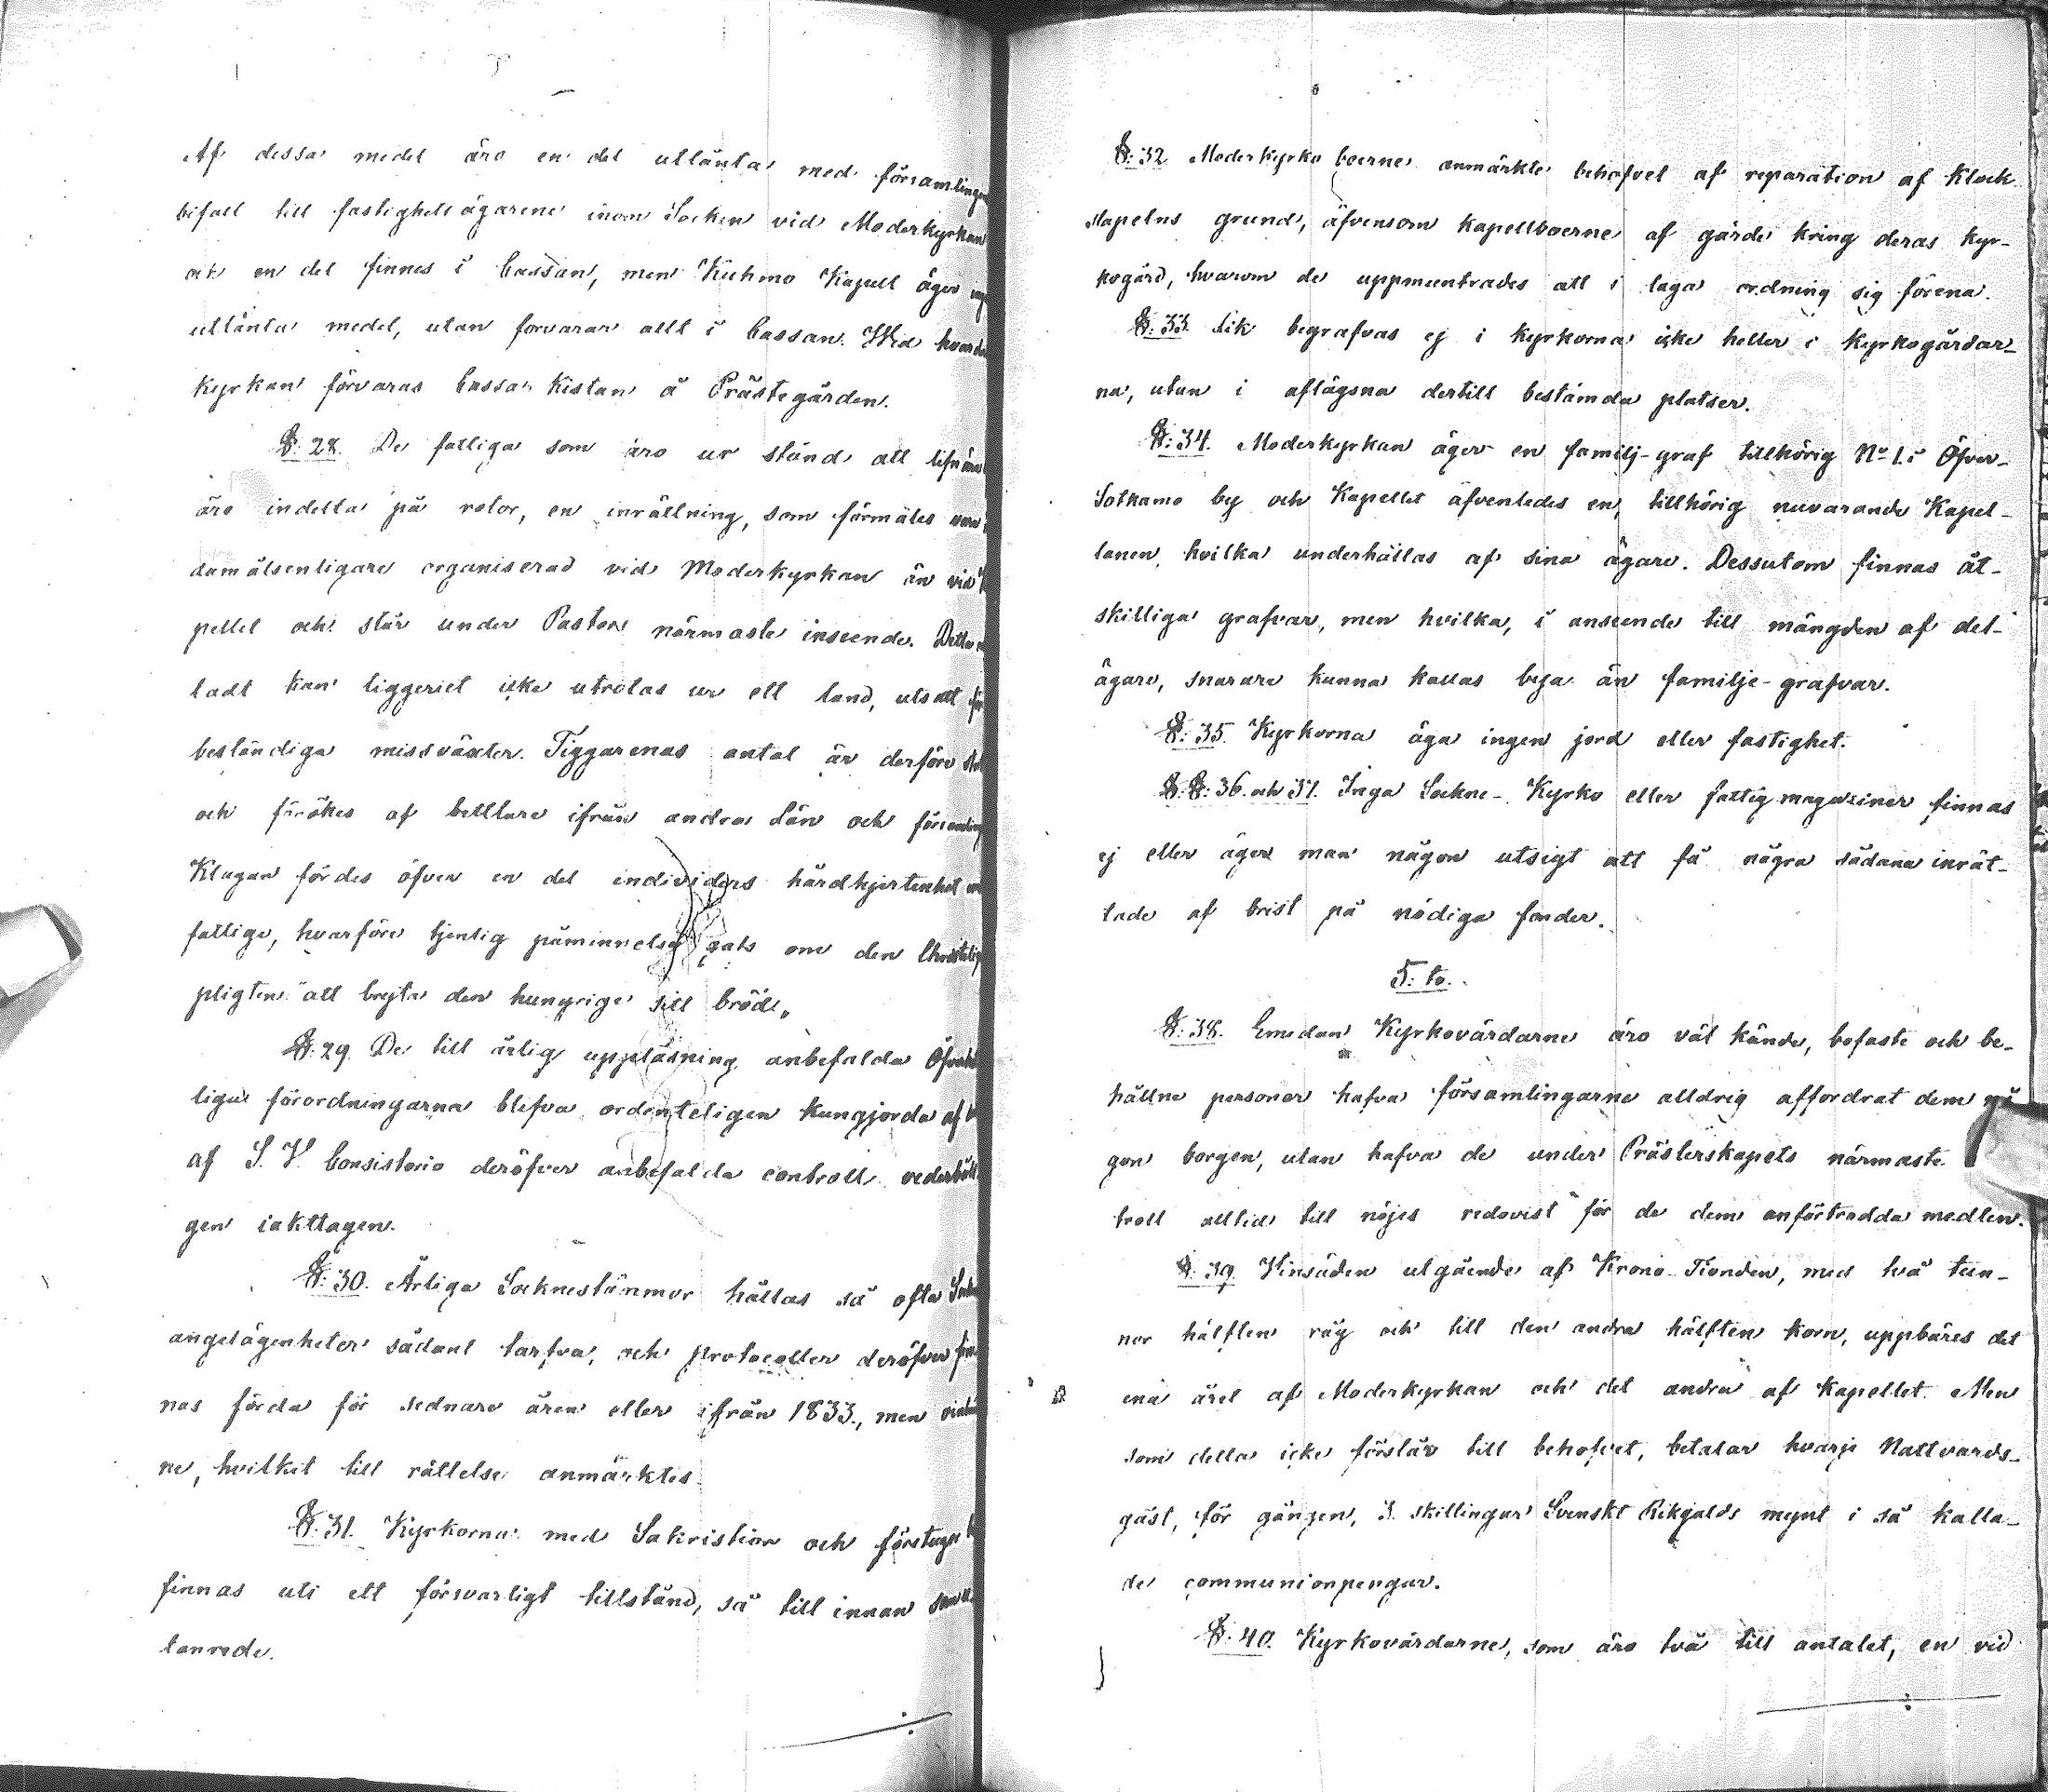 Af dessa medel äro en del utlänta med församlingens
bifall till fastighetsägarene inom Socken vid Moderkyrkan
och en del finnes i Cassan, men Kuhmo Kapell äger
utlänta medel, utan forvarar allt i Cassan. Wid
kyrkan förvaras Cassa-Kistan å Prästegården.
§: 28. De fattiga som äro ur stånd att
äro indelta på rotor, en inrättning, som förmäles
damålsenligare organiserad vid Moderkyrkan än vid
pellet och står under Pastors närmaste inseende. Detta
ladt kan tiggeriet icke utrotas ur ett land, utsatt för
beständiga missväxter. Tiggarenas antal är derföre
och förökes af betllare ifrån andra Län och
Klagan fördes öfver en del individers hårdhjertenhet
fattige, hvarföre tjenlig påminnelse gafs om den
pligten "att bryta den hungrige sitt bröd„
§: 29. De till årlig uppläsning anbefalda
liga förordningarna blefva ordenteligen kungjorda af
af S. V. Consistorio deröfver anbefalda controll
gen iakttagen.
§: 30. Årliga Socknestämmor hållas så ofta
angelägenheter sådant tarfva, och protocoller deröfver
nas förda för sednare åren eller ifrån 1833., men
ne, hvilket till rättelse anmärktes.
§: 31. Kyrkorna med Sakristior och
finnas uti ett försvarligt tillstånd, så till innan
tanrede.
§: 32 Moderkyrko boerne anmärkte behofvet af reparation af Klock
stapelns grund, äfvensom Kapellboerne af gärde kring deras kyr-
kogård, hvarom de uppmuntrades att i laga ordning sig förena.
§: 33. Lik begrafvas ej i kyrkorna icke heller i kyrkogårdar-
na, utan i aflägsna dertill bestämda platser.
§: 34. Moderkyrkan äger en familj-graf tillhörig No 1. i Öfver-
Sotkamo by och Kapellet äfvenledes en, tillhörig nuvarande Kapel-
lanen, hvilka underhållas af sina ägare. Dessutom finnas åt-
skilliga grafvar, men hvilka, i anseende till mängden af del-
ägare, snarare kunna kallas bya än familje-grafvar.
§: 35. Kyrkorna äga ingen jord eller fastighet.
§.§: 36. och 37. Inga Sockne- Kyrko eller fattigmagaziner finnas
ej eller äger man någon utsigt att få några sådana inrät-
tade af brist på nödiga fonder.
5: to.
§: 38. Emedan Kyrkovärdarne äro väl kände, bofaste och be-
hållne personer hafva församlingarne alldrig affordrat dem nå
gon borgen, utan hafva de under Prästerskapets närmaste
troll alltid till nöjes redovist för de dem anförtrodda medlen.
§: 39. Vinsäden utgående af Krono-Tionden, med två tun-
nor hälften råg och till den andra hälften korn, uppbäres det
ena året af Moderkyrkan och det andra af Kapellet. Men
som detta icke förslår till behofvet, betalar hvarje Nattvards-
gäst, för gången, 3 skillingar Svenskt Rikgälds mynt i så kalla-
de communionpengar.
§: 40. Kyrkovärdarne, som äro två till antalet, en vid